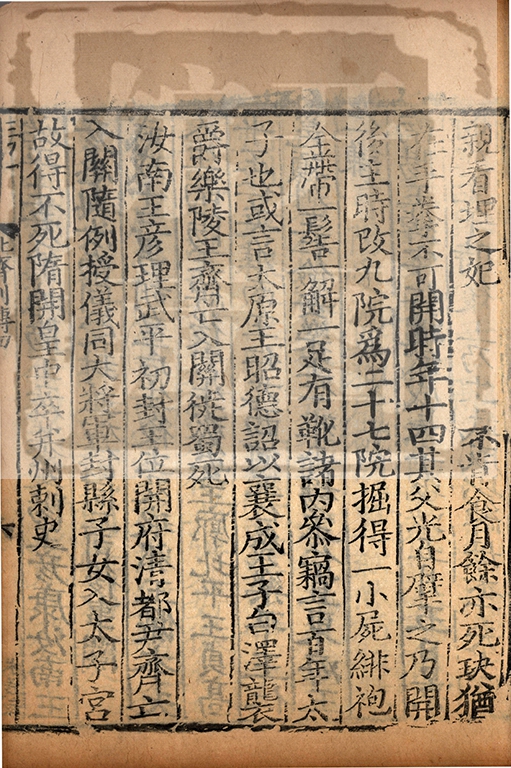 親看埋之妃不肯食月餘亦死玦猶
在手拳不可開時年十四其父光自擘之乃開
後主時改九院爲二十七院掘得一小屍緋袍
金帶一髻一解一足有靴諸内參竊言百年太
子也或言太原王昭德詔以襄成王子白澤襲
爵樂陵王齊亡入關徙蜀死
汝南王彦理武平初封王位開府清都尹齊亡
入關隨例授儀同大將軍封縣子女入太子宮
故得不死隋開皇中卒并州刺史